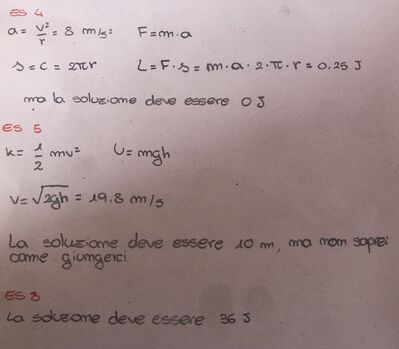 ES 4
a = v²/r = 8 m/s² F = m·a
s = c = 2πr L = F·s = m·a·2·π·r = 0,25 J
ma la soluzione deve essere 0 J
ES 5
K = 1/2 mv² U = mgh
V = √2gh = 19.8 m/s
La soluzione deve essere 10 m, ma non saprei
come giungerci
ES 8
La soluzione deve essere 36 J